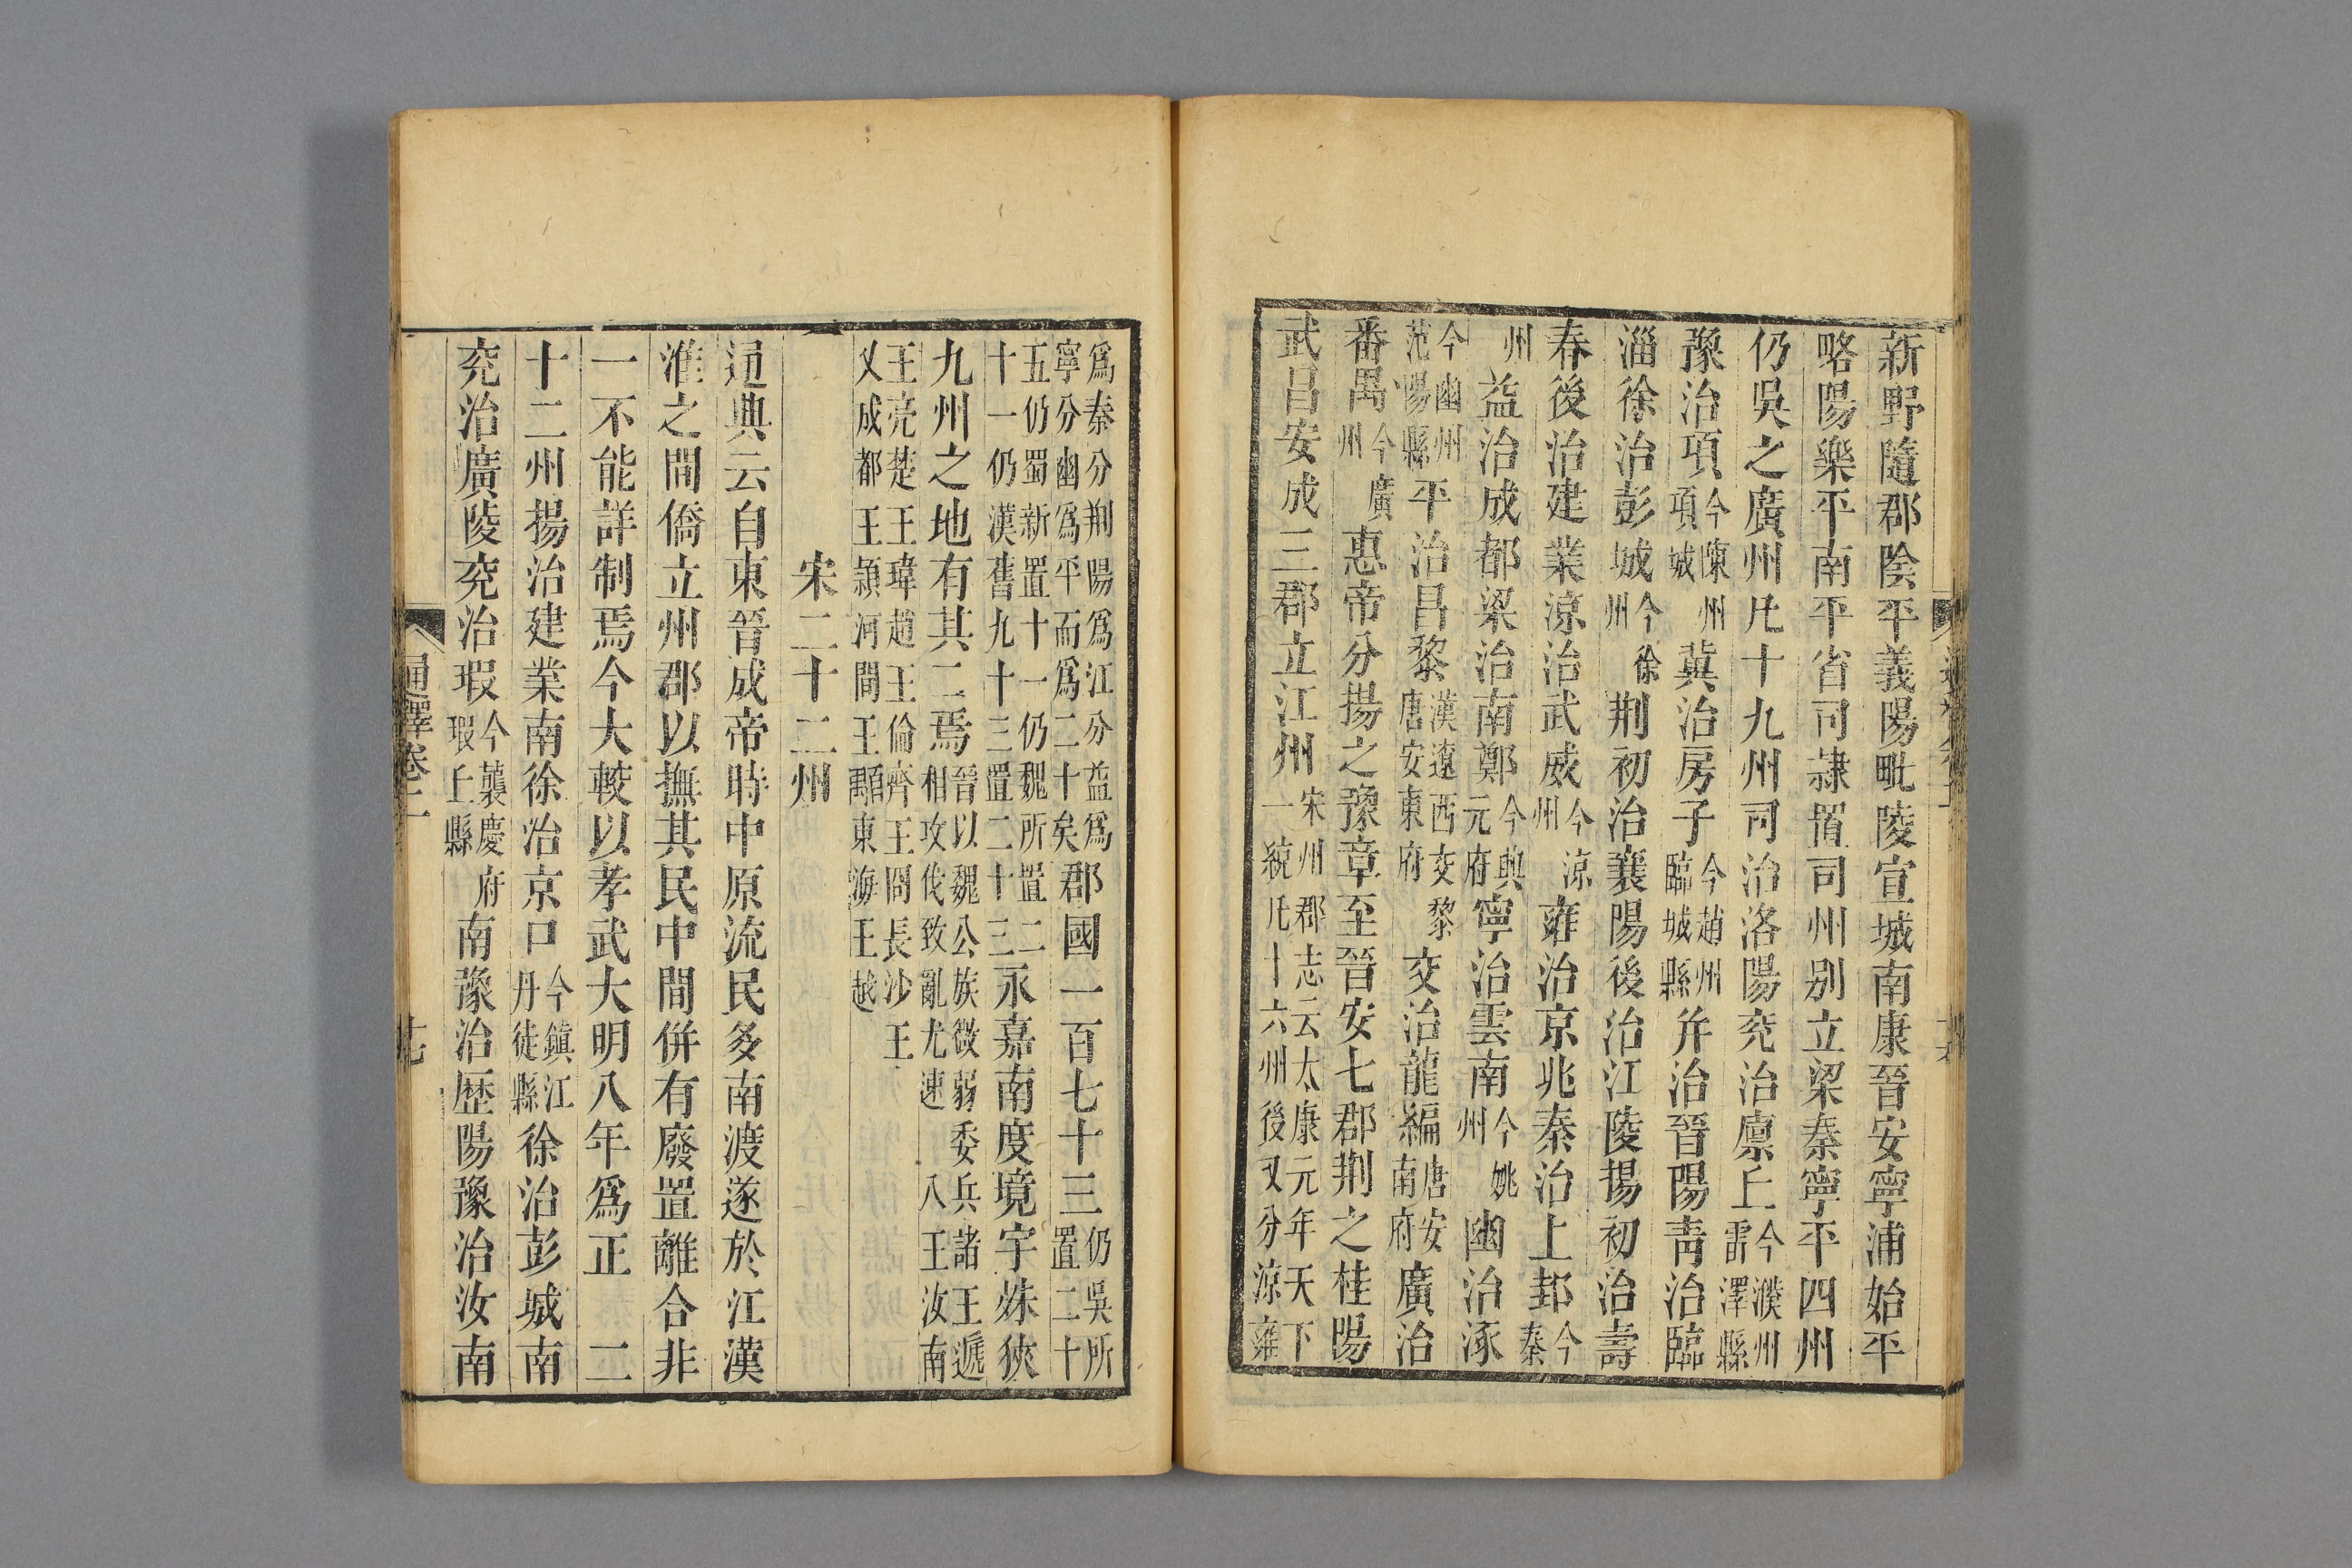 新野隨郡陰平義陽毗陵宣城南康晉安寧浦始平
略陽樂平南平省司隷置司州別立梁秦寧平四州
仍吳之廣州凡十九州司治洛陽兖治廩丘今濮州雷澤縣
豫治項今陳州項城冀治房子今趙州臨城縣并治晉陽靑治臨
淄徐治彭城今徐州荆初治襄陽後治江陵揚初治壽
春後治建業凉治武威今凉州雍治京兆秦治上邽今秦
州益治成都梁治南鄭今興元府寧治雲南今姚州幽治涿
今幽州范陽縣平治昌黎漢遼西交黎唐安東府交治龍編唐安南府廣治
番禺今廣州惠帝分揚之豫章至晉安七郡荆之桂陽
武昌安成三郡立江州宋州郡志云太康元年天下一統凡十六州後又分凉雍
爲秦分荆陽爲江分益爲寧分幽爲平而爲二十矣郡國一百七十三仍吳所置二十
五仍蜀新置十一仍魏所置二十一仍漢舊九十三置二十三永嘉南度境宇殊狹
九州之地有其二焉晉以魏公族微弱委兵諸王遞相攻伐致亂尤速 八王汝南
王亮楚王瑋趙王倫齊王冏長沙王乂成都王頴河間王顒東海王越
宋二十二州
通典云自東晉成帝時中原流民多南渡遂於江漢
淮之間僑立州郡以撫其民中間併有廢置離合非
一不能詳制焉今大較以孝武大明八年爲正 二
十二州揚治建業南徐治京口今鎮江丹徒縣徐治彭城南
兖治廣陵兖治瑕今襲慶府瑕丘縣南豫治歷陽豫治汝南
通釋卷二
十七